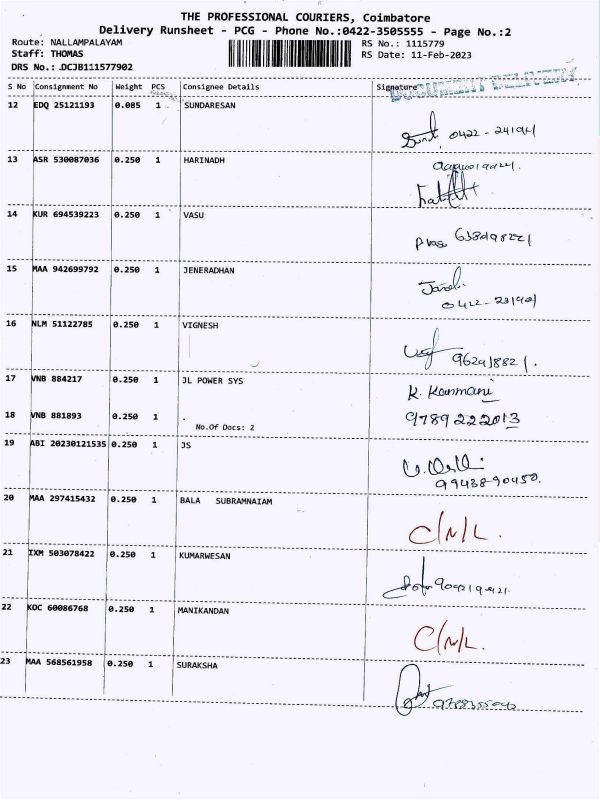 THE PROFESSIONAL COURIERS, Coimbatore
Delivery Runsheet - PCG - Phone No.:0422-3505555 - Page No.:2
Route: NALLAMPALAYAM RS No.: 1115779
Staff: THOMAS RS Date: 11-Feb-2023
DRS No.: DCJB111577902
S No Consignment No Weight PCS Consignee Details Signature
DOCUMENT DELIVERY
12 EDQ 25121193 0.085 1 SUNDARESAN
13 ASR 530087036 0.250 1 HARINADH
14 KUR 694539223 0.250 1 VASU
15 MAA 942699792 0.250 1 JENERADHAN
16 NLM 51122785 0.250 1 VIGNESH
17 VNB 884217 0.250 1 JL POWER SYS K. Kanmani
18 VNB 881893 0.250 1 . 9789222013
No.Of Docs: 2
19 ABI 20230121535 0.250 1 JS
9943890450.
20 MAA 297415432 0.250 1 BALA SUBRAMNAIAM
C/N/L.
21 IXM 503078422 0.250 1 KUMARWESAN
22 KOC 60086768 0.250 1 MANIKANDAN
C/N/L.
23 MAA 568561958 0.250 1 SURAKSHA